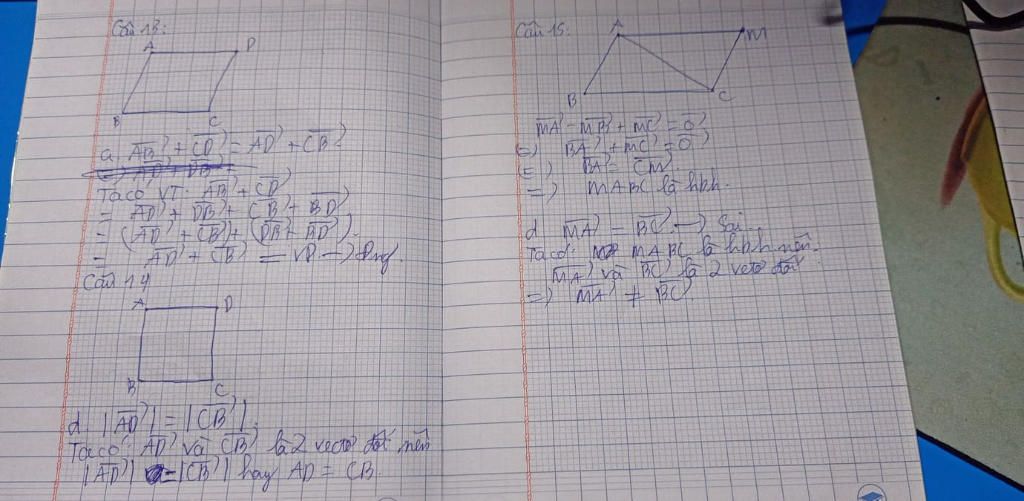 Câu 13:
A D
B C
a. AB + CD = AD + CB
Ta có VT: AB + CD
= AD + DB + CB + BD
= (AD + CB) + (DB + BD).
= AD + CB = VP → Đúng.
Câu 14
A D
B C
d. |AD| = |CB|.
Ta có: AD và CB là 2 vecto đối nên
|AD| = |CB| hay AD = CB.
Câu 15:
A M
B C
MA - MB + MC = 0
BA + MC = 0
BA = CM
=) MABC là hbh.
d MA = BC → Sai.
Ta có: MABC là hbh nên.
MA và BC là 2 vecto đối
=) MA ≠ BC.